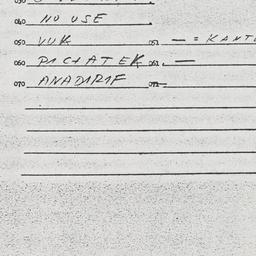 040 NO USE
050 VUK 051 — = KANT
060 PICHATEK 061 —
070 ANADIRIF 071 —